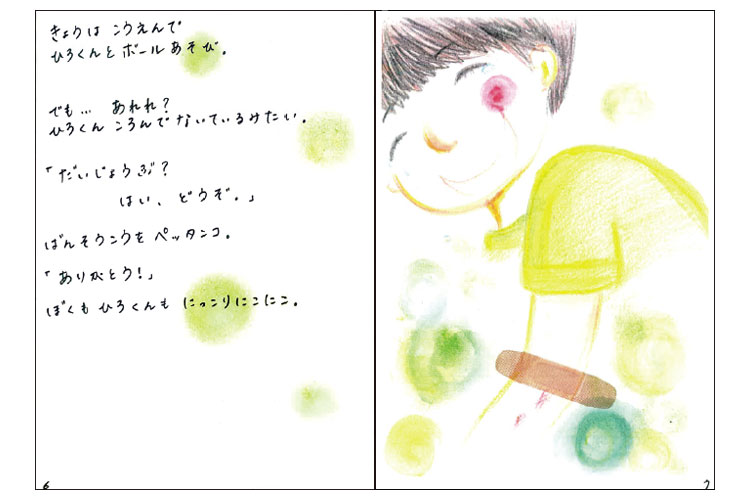 きょうは こうえんで
ひろくんと ボールあそび。
でも… あれれ？
ひろくん ころんで ないているみたい。
「だいじょうぶ？
はい、どうぞ。」
ばんそうこうを ペッタンコ。
「ありがとう！」
ぼくも ひろくんも にっこりにこにこ。
6
7